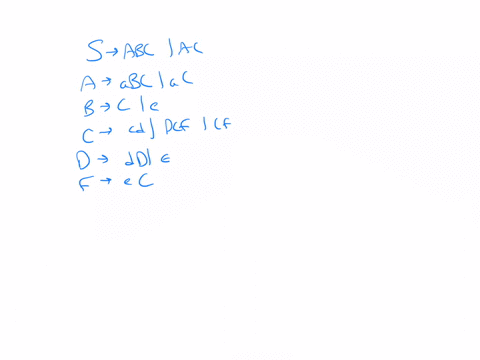 S → ABC | AC
A → aBC | aC
B → C | e
C → cd | DCF | CF
D → dD | ϵ
F → eC